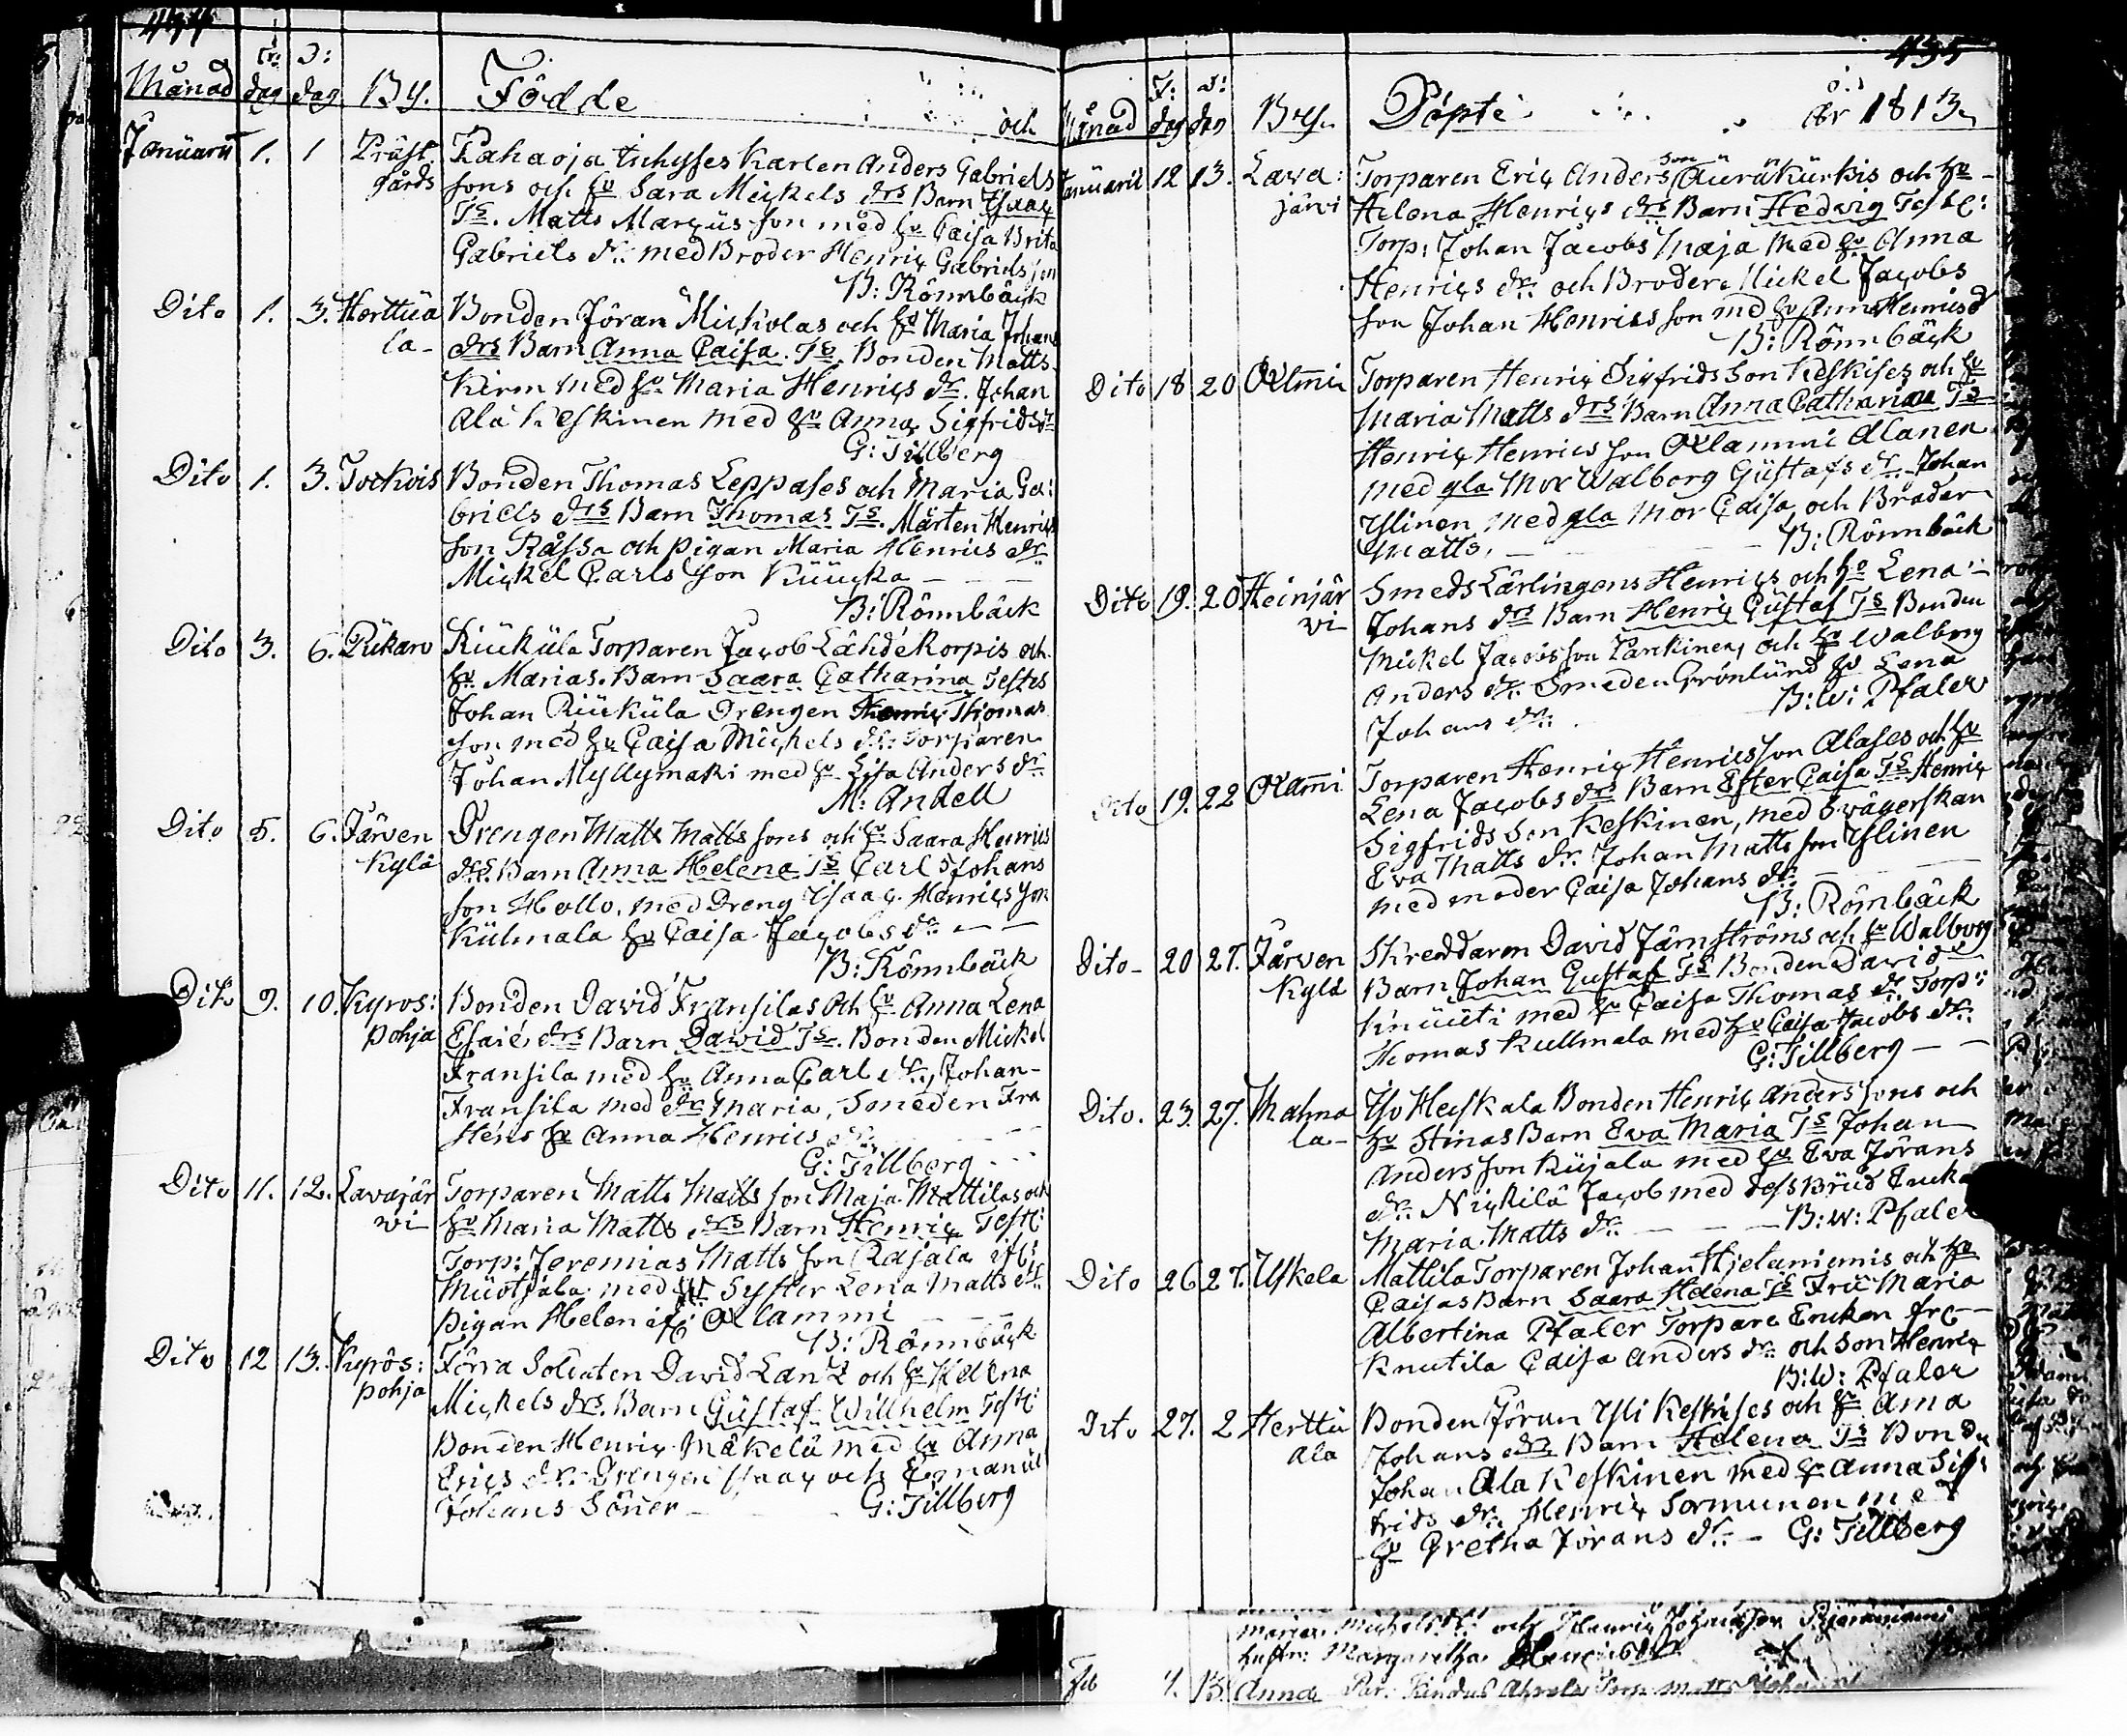 Månad dag dag By. Födde och
Januarii 1. 1 Präst Rahaoja tuhyses Karlen Anders Gabriels
gårds sons och hu Sara Mickels drs Barn Isaac
Ts. Matts Marcus son med hu Caisa Brita
Gabriels dr: med Broder Henric Gabriels son
B: Rönnbäck
Dito 1. 3. Herttua Bonden Jöran Mickolas och hu Maria Johans
la- drs Barn Anna Caisa. Ts. Bonden Matts
Kirm med hu Maria Henrics dr. Johan
Ala Keskinen med hu Anna Sigfrids dr
G: Tillberg
Dito 1. 3. Tockois Bonden Thomas Leppases och Maria Ga:
briels drs Barn Thomas Ts. Mårten Henrics
son Råssa och pigan Maria Henrics dr
Mickel Carls son Kuucka
B: Rönnbäck
Dito 3. 6. Riukula Torparen Jacob Lähdekorpis och
hu Marias. Barn Saara Catharina Testes
Johan Riukula Drengen Thomas
son med hu Caisa Mickels dr: Torparen
Johan Myllymaki med hu Lisa Anders dr
M: Andell
Dito 5. 6. Järven Drengen Matts Matts sons och hu Saara Henrics
Kylä drs. Barn Anna Helena Ts Carl Johans
son Hollo, med Dreng Isaac Henrics son
Kulmala hu Caisa Jacobs dr
B: Rönnbäck
Dito 9. 10. Kyros: Bonden David Fransilas och hu Anna Lena
pohja Esaié drs Barn David Ts. Bonden Mickel
Fransila med hu Anna Carl dr., Johan
Fransila med dr Maria, Smeden Fra
sténs hu Anna Henrics dr
G: Tillberg
Dito 11. 12. Lavajär Torparen Matts Matts son Maja Mattilas och
wi hu Maria Matts drs Barn Henric Test:
Torp: Jeremias Matts son Rajala
med Syster Lena Matts dr
pigan Helen Olammi
B: Rönnbäck
Dito 12 13. Kyrös: Förra Soldaten David Lantz och hu Helena
pohja Mickels drs. Barn Gustaf Willhelm Test:
Bonden Henric Mäkelä med hu Anna
Erics dr: Drengen Isaac och Emanuel
Johans Söner G: Tillberg
435
Månad dag dag By. Döpte År 1813
Januarii 12 13. Lava: Torparen Eric Anders son Auräkurkis och hu
järvi Helena Henrics drs Barn Hedvig Test:
Torp: Johan Jacobs Maja med hu Anna
Henrics dr: och Broder Mickel Jacobs
son Johan Henrics son md hu Anna Henricsd
B: Rönnbäck
Dito 18 20 Olmi Torparen Henric Sigfrids son Keskises och hu
Maria Matts drs Barn Anna Catharina Ts
Henric Henrics son Olammi Alanen
med gla Mor Walborg Gustafs dr. Johan
Yslinen med gla Mor Caisa och Brader
Matts, B: Rönnbäck
Dito 19. 20 Heinjär Smeds Lärlingens Henrics och hu Lena
vi Johans drs Barn Henric Gustaf Ts Bonden
Mickel Jacobsson Parckinen, och hu Walborg
Anders dr. Smeden Grönlund hu Lena
Johans dr: B: W: Pfaler
Dito 19. 22 Olami Torparen Henric Henricsson Alases och hu
Lena Jacobs drs Barn Ester Caisa Ts Henric
Sigfrids Son Keskinen, med Svägerskan
Eva Matts dr. Johan Matts son Yslinen
med moder Caisa Johans dr
B: Rönnbäck
Dito 20 27. Järven Skreddaren David Järnströms och hu Walborg
Kylä Barn Johan Gustaf Ts Bonden David
Knuuti med hu Caisa Thomas dr. Torp:
Thomas Kullmala med hu Caisa Jacobs dr.
G: Tillberg
Dito. 23. 27. Mahna Iso Heiskala Bonden Henric Anders sons och
la- hu Stinas Barn Eva Maria Ts Johan
Anders son Kujala med hu Eva Jörans
dr. Nickilä Jacob med dess Brud Encka
Maria Matts dr B: W: Pfaler
Dito 26 27. Uskela Mattila Torparen Johan Hjetaniemis och hu
Caisas Barn Saara Helena Ts Fru Maria
Albertina Pfaler Torpare Enckan fr
Knutila Caisa Anders dr. och Son Henric
B: W: Pfaler
Dito 27. 2 Herttu Bonden Jöran Yli Keskises och hu Anna
ala Johans drs Barn Helena Ts Bonden
Johan Ala Keskinen med hu Anna Sig
frids dr. Henric Sormunen med
hu Gretha Jörans dr. G: Tillberg
Maria Michelsdr. och Henric
hustr: Margaretha Henricsdr
Feb 7. 13. Anna